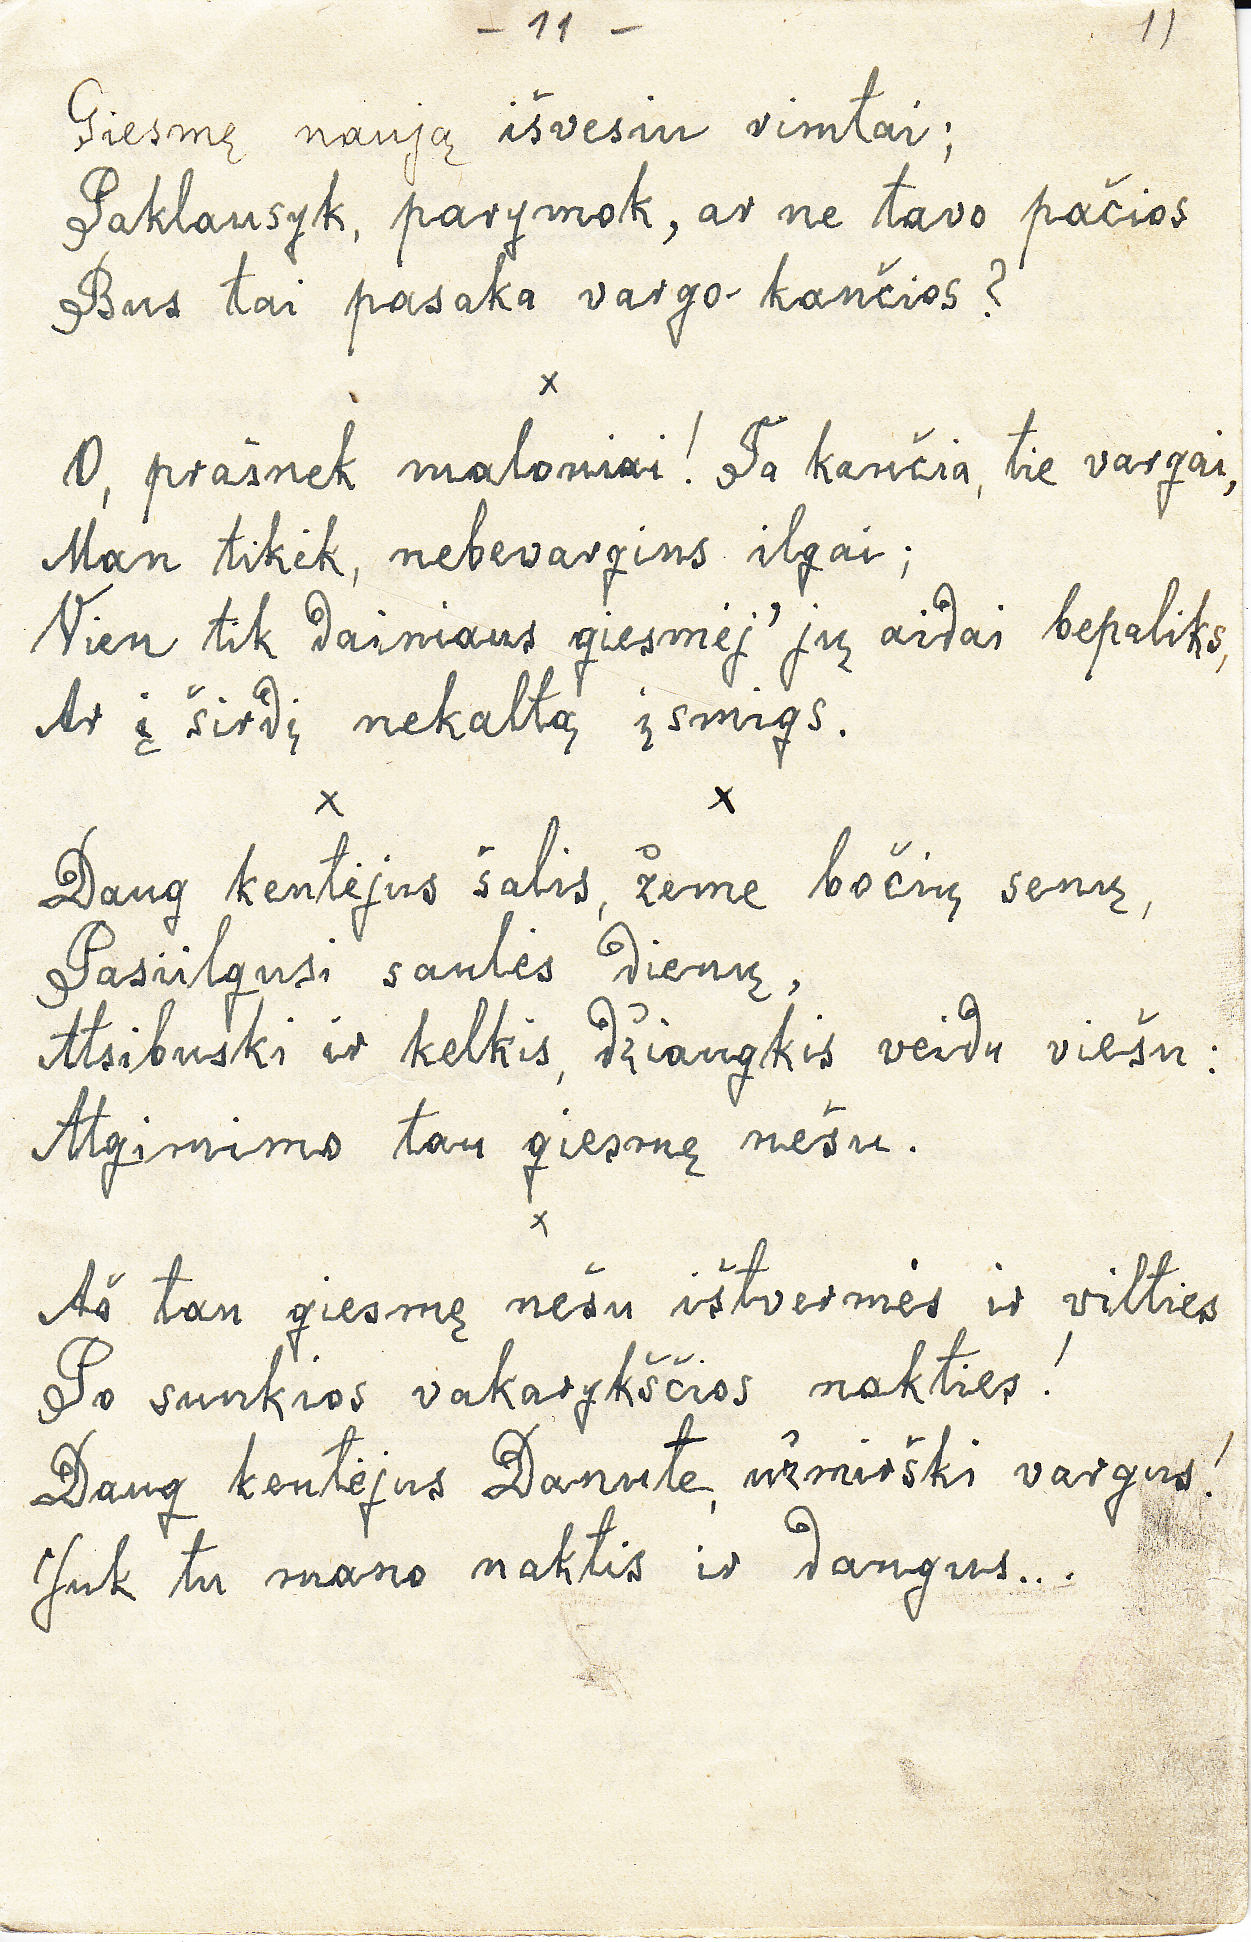 - 11 - 11
Giesmę naują išvesiu rimtai;
Paklausyk, parymok, ar ne tavo pačios
Bus tai pasaka vargo-kančios?
x
O, prašnek maloniai! Ta kančia, tie vargai,
Man tikėk, nebevargins ilgai;
Vien tik dainiaus giesmėj' jų aidai bepaliks,
Ar į širdį nekaltą įsmigs.
x x
Daug kentėjus šalis, žeme bočių senų,
Pasiilgusi saulės dienų,
Atsibuski ir kelkis, džiaugkis veidu viešu:
Atgimimo tau giesmę nešu.
x
Aš tau giesmę nešu ištvermės ir vilties
Po sunkios vakarykščios nakties!
Daug kentėjus Danute, užmirški vargus!
Juk tu mano naktis ir dangus...